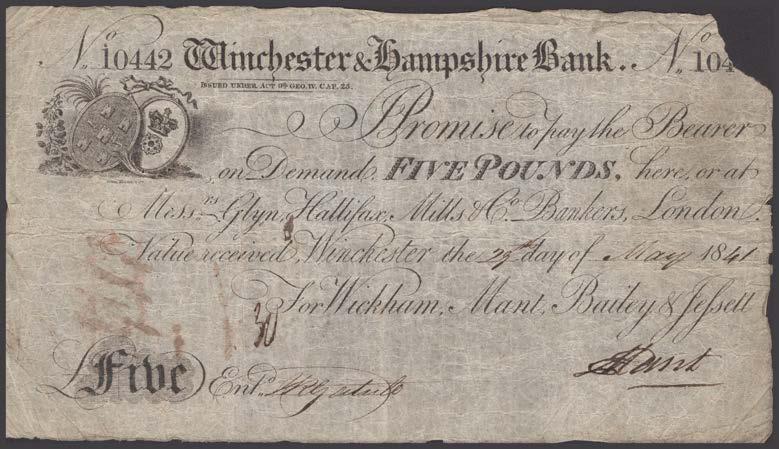 No. 10442 Winchester & Hampshire Bank. No. 104
ISSUED UNDER ACT 9th GEO. IV. CAP. 23.
I Promise to pay the Bearer
on Demand FIVE POUNDS, here, or at
Messrs Glyn, Hallifax, Mills & Co. Bankers, London.
Value received, Winchester the 29th day of May 1841
For Wickham, Mant, Bailey & Jessett
30
£ Five Entd. Mant